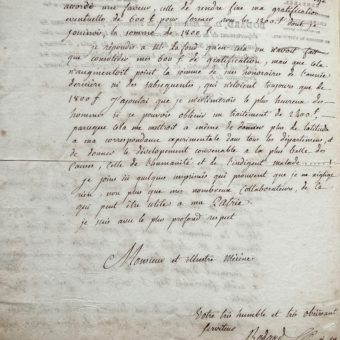 accordé une faveur, celle de rendre fixe ma gratification
éventuelle de 600 f pour former avec les 1200 f dont je
jouirois, la somme de 1800 f.
je répondis à M. Le Fond qu'en cela on n'avoit fait
que consolider mes 600 f de gratification, mais que cela
n'augmentoit point la somme de mes honoraires de l'année
dernière ni des subséquentes, qui n'étoient toujours que de
1800 f. J'ajoutai que je m'estimerois le plus heureux des
hommes si je pouvois obtenir un traitement de 2400 f.
parceque cela me mettroit à même de donner plus de latitude
à ma correspondance expérimentale dans tous les départemens, et
de donner le développement convenable à la plus belle des
causes, celle de l'humanité et de l'indigent malade
je joins ici quelques imprimés qui prouvent que je ne néglige
rien, non plus que mes nombreux collaborateurs, de ce
qui peut être utiles à ma Patrie.
je suis avec le plus profond respect
Monsieur et illustre Mécène.
Votre très humble et très obéissant
serviteur